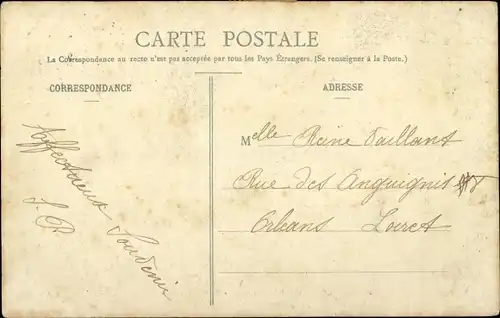 CARTE POSTALE
La Correspondance au recto n'est pas acceptée par tous les Pays Étrangers. (Se renseigner à la Poste.)
CORRESPONDANCE
Affectueux Souvenir
J. P.
ADRESSE
Melle Reine Vaillant
Rue des Anguignis
Orléans Loiret